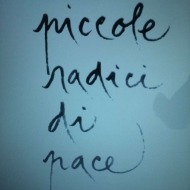 piccole
radici
di
pace